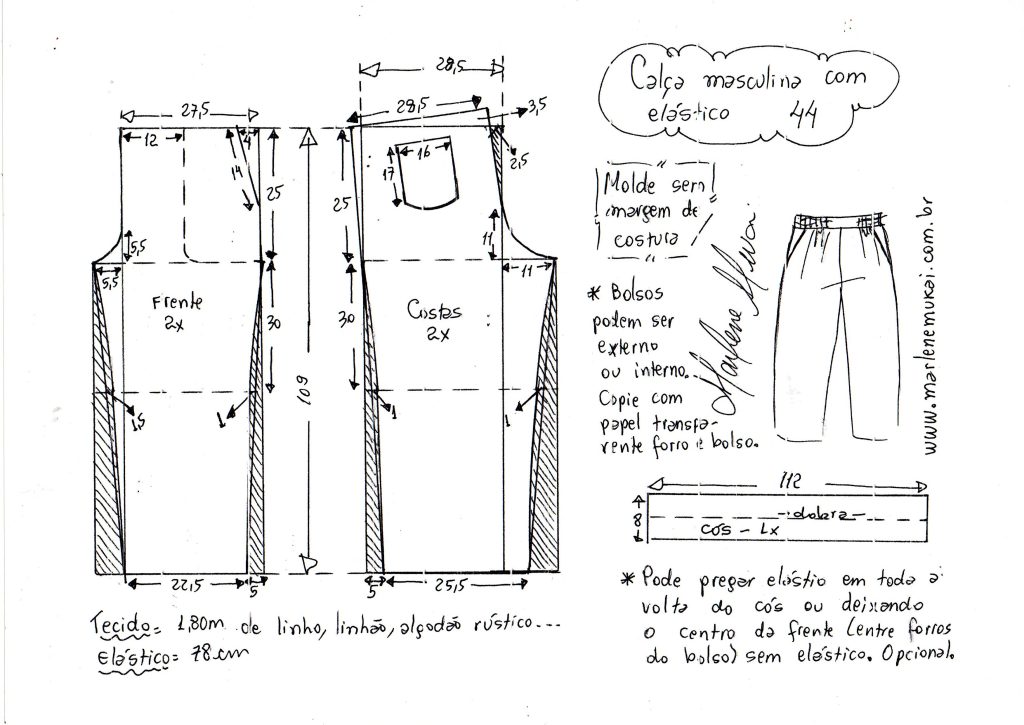 Calça masculina com
elástico 44
28,5
27,5
28,5
3,5
12
4
14
16
17
2,5
25
25
11
5,5
5,5
11
Frente
2x
Costas
2x
30
30
109
1,5
1
1
1
22,5
5
5
25,5
Molde sem
margem de
costura
Marlene Mukai.
www.marlenemukai.com.br
* Bolsos
podem ser
externo
ou interno..
Copie com
papel transpa-
rente forro e bolso.
112
8
dobra
cós - 1x
Tecido= 1,80m de linho, linhão, algodão rústico...
Elástico= 78cm
* Pode pregar elástio em toda a
volta do cós ou deixando
o centro da frente (entre forros
do bolso) sem elástico. Opcional.